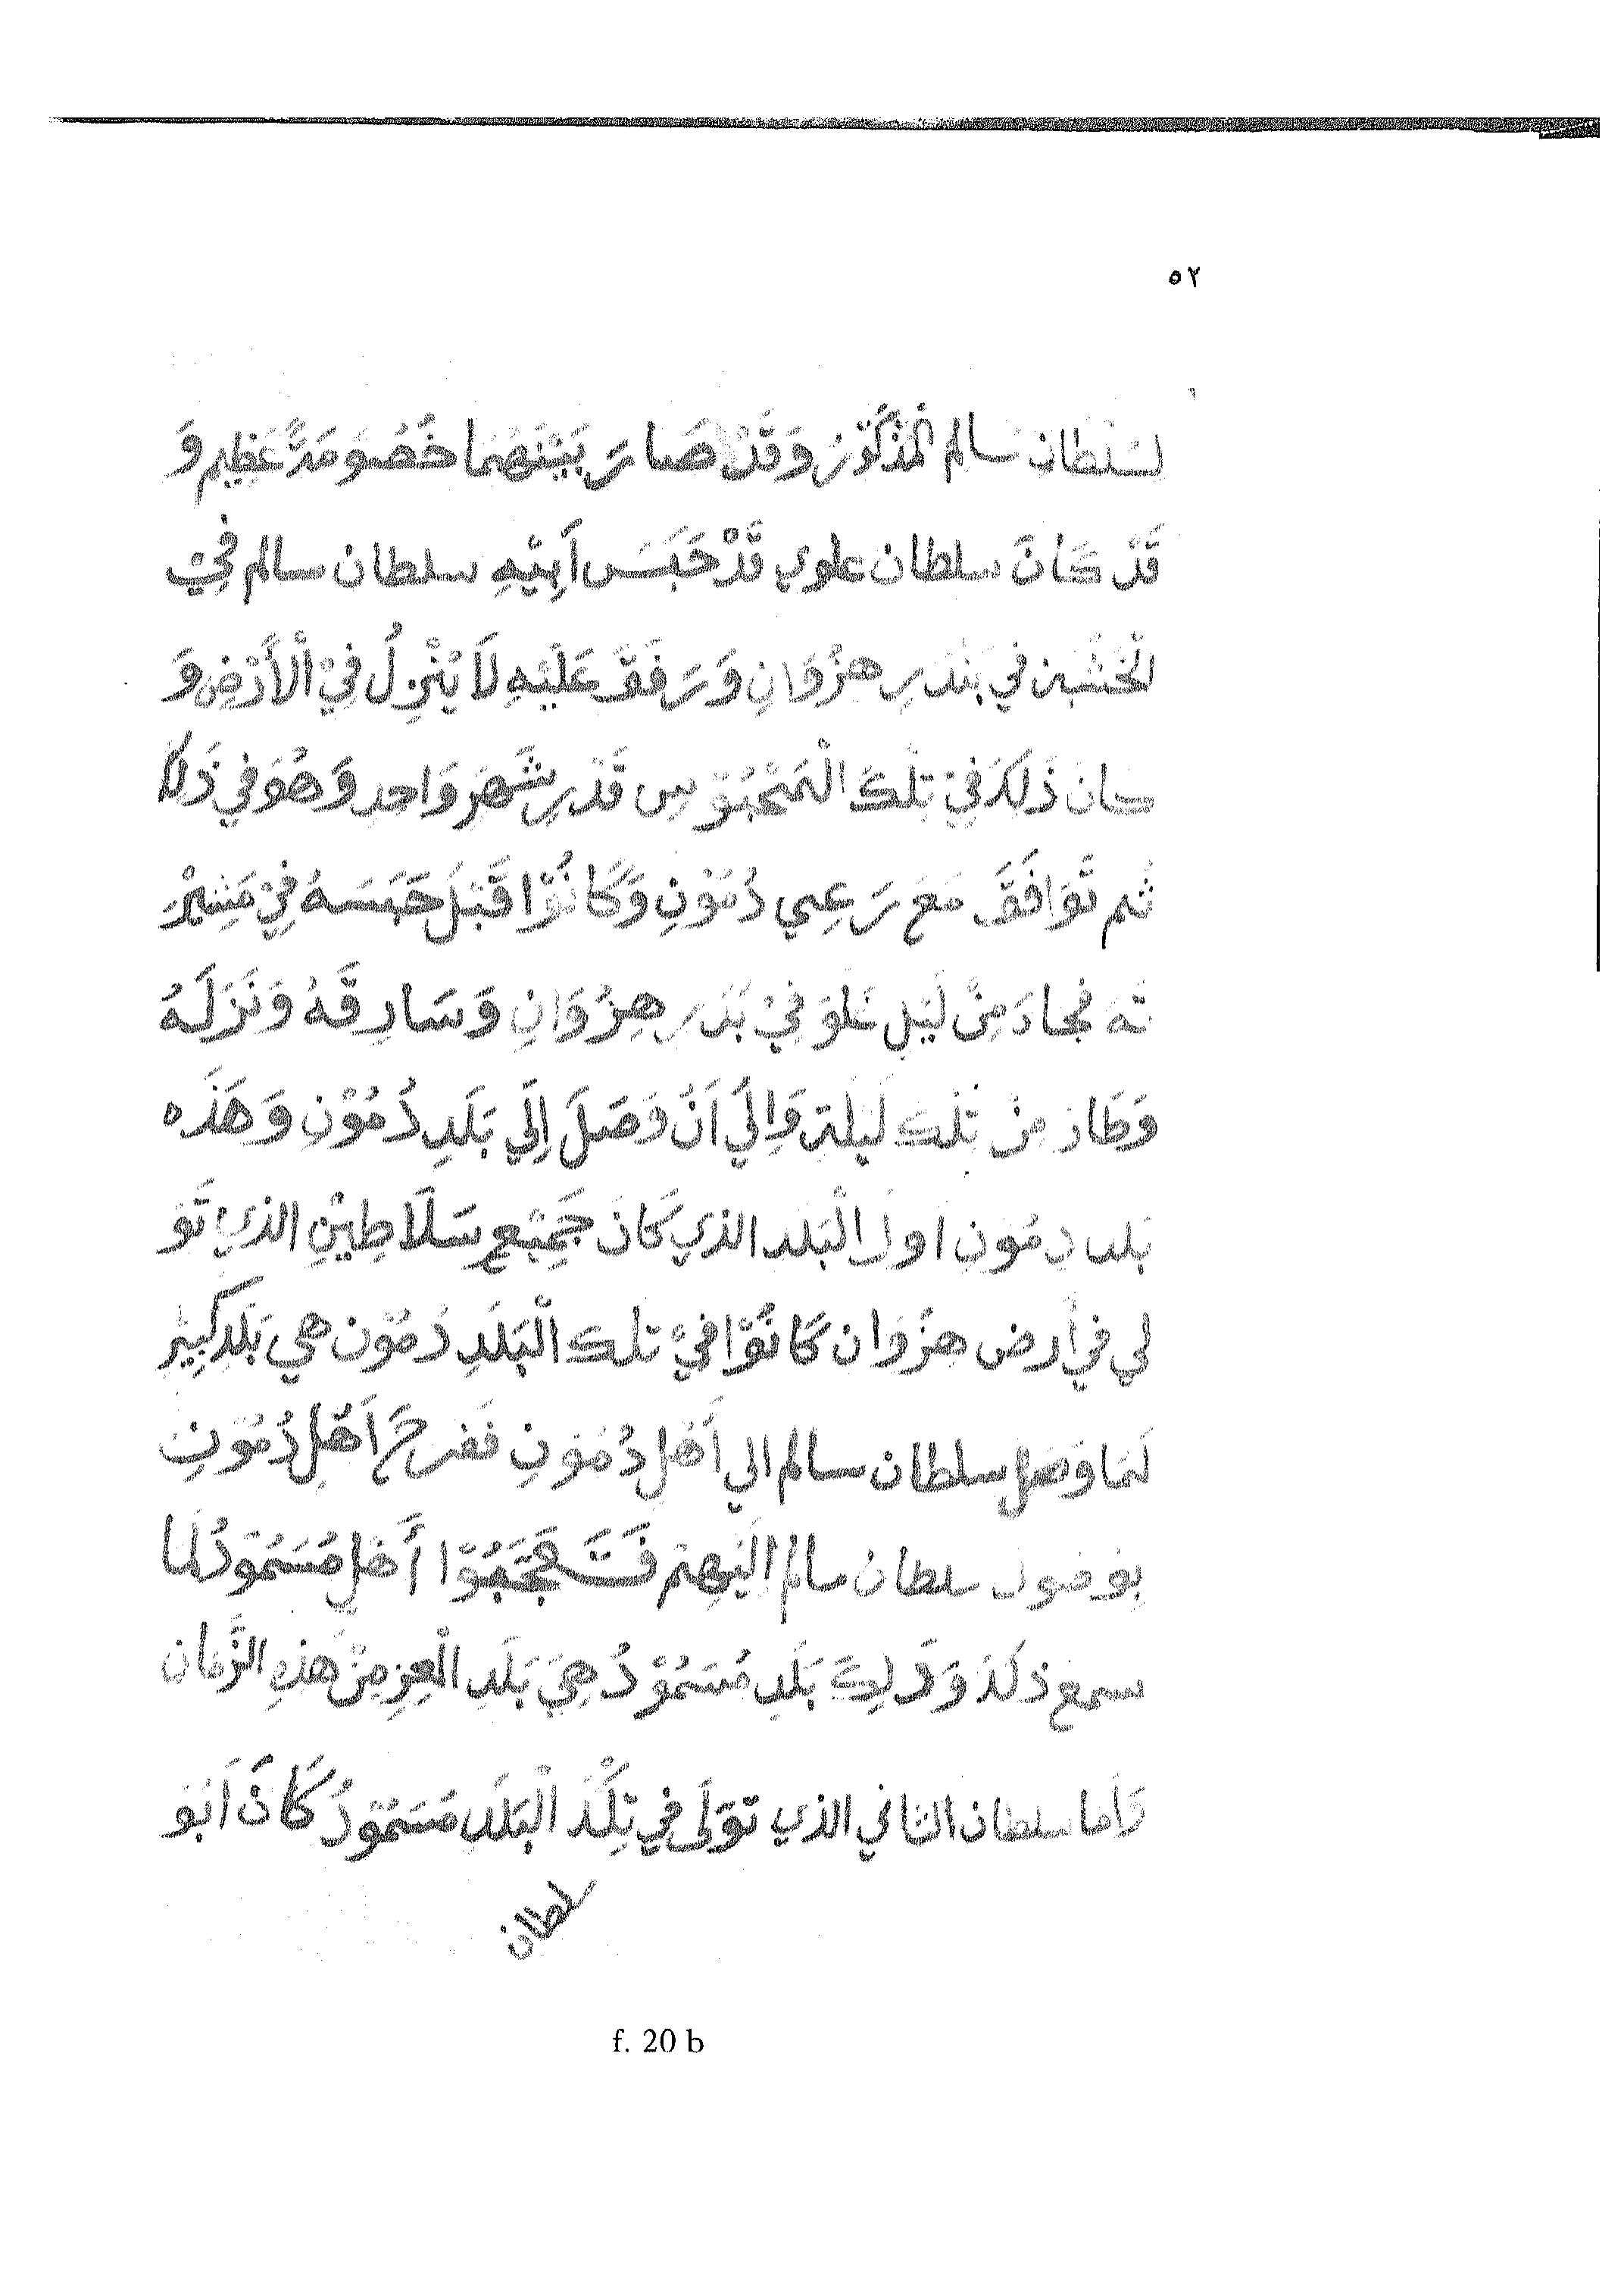 ٥٢
لسَلْطَانِ سَالم الْمَذْكُوْرِ وَقَدْ صَارَ بَيْنَهُمَا خَصُوْمَةً عَظِيم وَ
قَدْ كَانَ سلطان علوي قَدْ حَبَسَ اَبِيْهِ سلطان سالم فِيْ
الْخَشَبِ في بَنْدَرِ هِنْزُوَانِ وَرَفَقَ عَلَيْهِ لَا يَنْزِلُ فِيْ الْأَرْضِ وَ
كانَ ذَلِكَ فِيْ تِلْكَ الْمَحْبُوْسِ قَدْرِ شَهْرِ وَاحِدِ وَهُوَ فِي ذَلِكَ
ثم تَوَافَقَ مَعَ رَعِي دُمُوْنِ وَكَانُوْا قَبْلَ حَبَسَهُ فِيْ مَشِيْرَ
تَهُ فجاءَ مِنْ لَيْلِ فِيْ بَنْدَرِ هِنْزُوَانِ وَسَارِقَهُ وَنَزَلَهُ
وَطَارَ مِنْ تِلْكَ لَيْلَة وَاِلَي اَنْ وَصَلَ اِلَي بَلَدِ دُمُوْنِ وَهَذَه
بَلَد دمُوْن اول الْبَلد الذي كَانَ جَمِيْعِ سَلَاطِيْنِ الذي تَوَ
لي في أرض هنزوَان كَانُوْا فِيْ تلك الْبَلَدِ دُمُوْن هي بَلَدِ كَبِيْرِ
لَمَا وَصَل سلطان سالم الي أَهْلِ دُمُوْنِ فَفَرحَ اَهْلِ دُمُوْنِ
بِوصول سلطان سالم اِلَيْهِمْ فَتَعَجَّبُوْا أَهْلِ مُسَمُوْدُ لَمَا
سمع ذلك وَذَلِكَ بَلَدِ مُسَمُوْدُ هِيَ بَلَدِ الْعِزِ مِنْ هَذِهِ الزَّمَان
وَاَما سلطان الثاني الذي تَوَلَى فِي تِلْكَ الْبَلَدِ مُسَمُوْدُ كَانَ اَبُو
سلطان
f. 20 b